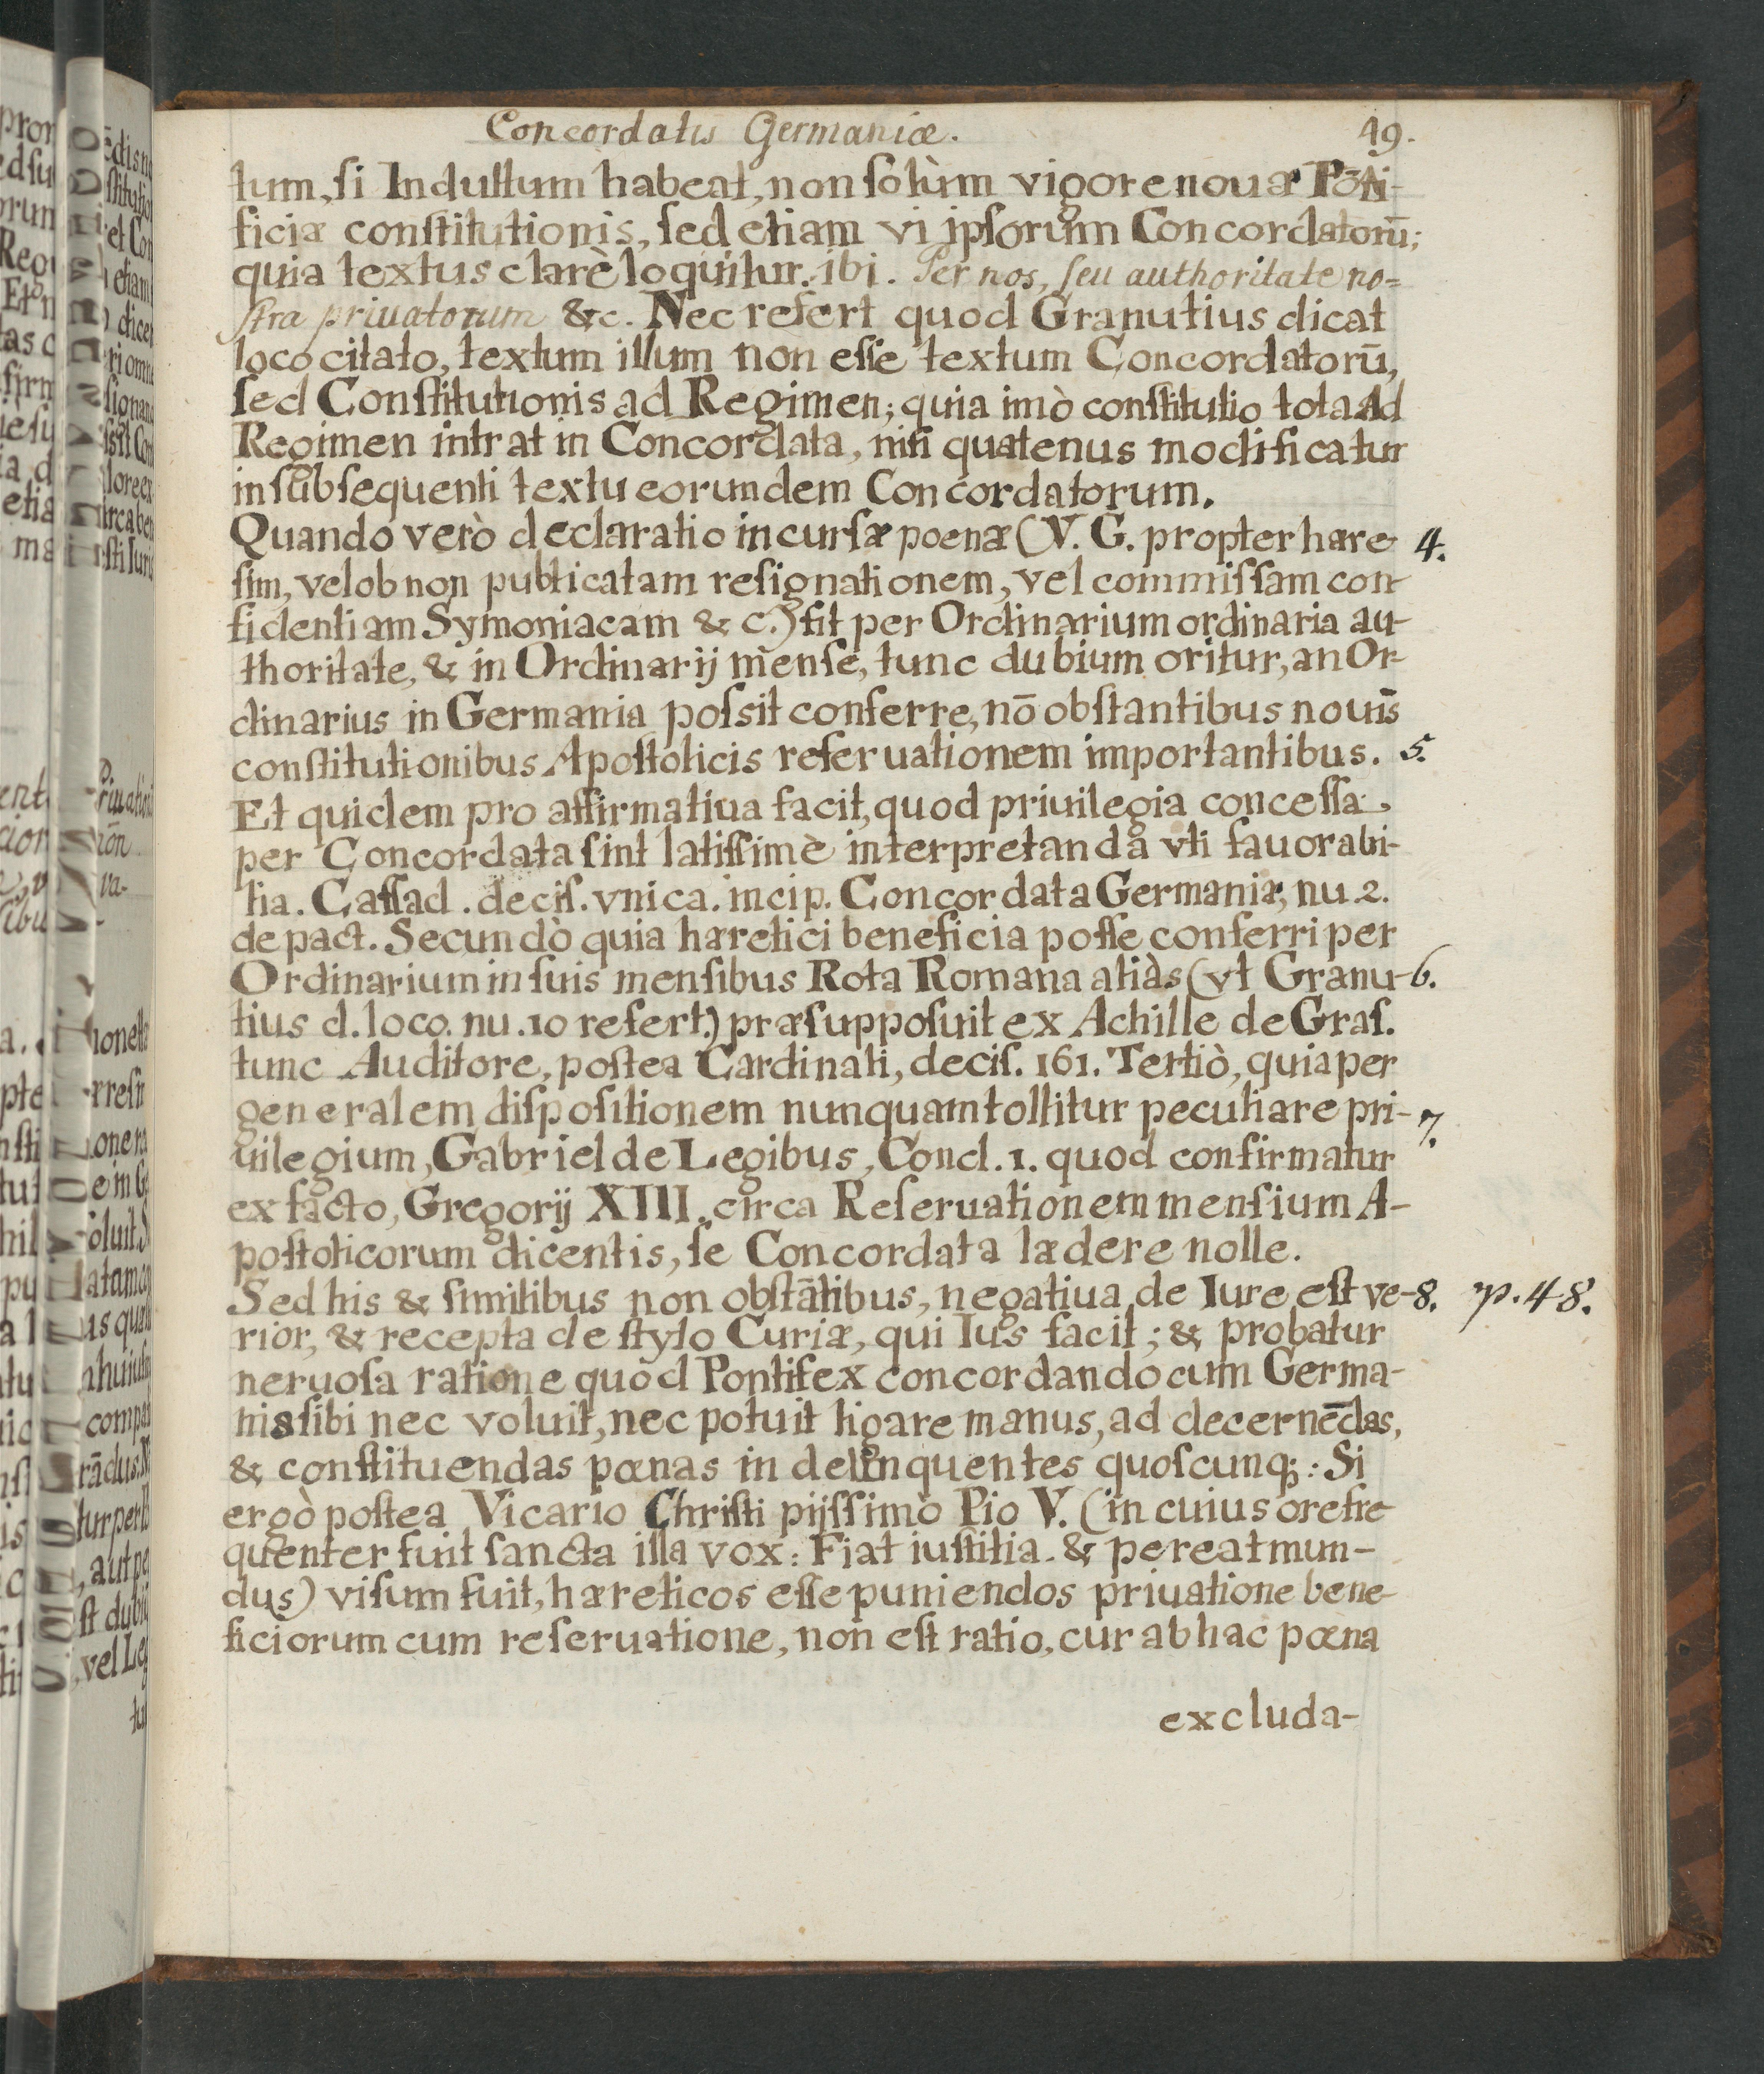 Concordatis Germaniæ. 49.
tum, ſi Indultum habeat, non ſolùm vigore nouæ Põti-
ficiæ conſtitutionis, ſed etiam vi ipſorum Concordatorũ;
quia textus clarè loquitur. ibi. Per nos, ſeu authoritate no=
ſtra priuatorum &c. Nec refert quod Granutius dicat
loco citato, textum illum non eſſe textum Concordatorũ,
ſed Conſtitutionis ad Regimen; quia imò conſtitutio tota Ad
Regimen intrat in Concordata, niſi quatenus modificatur
in ſubſequenti textu eorundem Concordatorum.
Quando verò declaratio incurſæ poenæ (V. G. propter hære 4.
ſim, vel ob non publicatam reſignationem, vel commiſſam con-
fidentiam Symoniacam & c.) fit per Ordinarium ordinaria au-
thoritate, & in Ordinarij menſe, tunc dubium oritur, an Or-
dinarius in Germania poſsit conferre, nõ obſtantibus nouis
conſtitutionibus Apoſtolicis reſeruationem importantibus. 5.
Et quidem pro affirmatiua facit, quod priuilegia conceſſa
per Concordata ſint latiſſimè interpretanda vti fauorabi-
lia. Caſſad. deciſ. vnica. incip. Concordata Germaniæ, nu. 2.
de pact. Secundò quia hæretici beneficia poſſe conferri per
Ordinarium in ſuis menſibus Rota Romana aliàs (vt Granu- 6.
tius d. loco. nu. 10 refert.) præſuppoſuit ex Achille de Graſ.
tunc Auditore, poſtea Cardinali, deciſ. 161. Tertiò, quia per
generalem diſpoſitionem nunquam tollitur peculiare pri- 7.
uilegium, Gabriel de Legibus, Concl. 1. quod confirmatur
ex facto, Gregorij XIII. circa Reſeruationem menſium A-
poſtolicorum dicentis, ſe Concordata lædere nolle.
Sed his & ſimilibus non obſtãtibus, negatiua de Iure eſt ve- 8. p. 48.
rior, & recepta de ſtylo Curiæ, qui Ius facit; & probatur
neruoſa ratione quòd Pontifex concordando cum Germa-
nis ſibi nec voluit, nec potuit ligare manus, ad decernẽdas,
& conſtituendas pœnas in delinquentes quoſcunq;: Si
ergò poſtea Vicario Chriſti pijſſimo Pio V. (in cuius ore fre
quenter fuit ſancta illa vox: Fiat iuſtitia. & pereat mun-
dus) viſum fuit, hæreticos eſſe puniendos priuatione bene-
ficiorum cum reſeruatione, non eſt ratio, cur ab hac pœna
excluda-